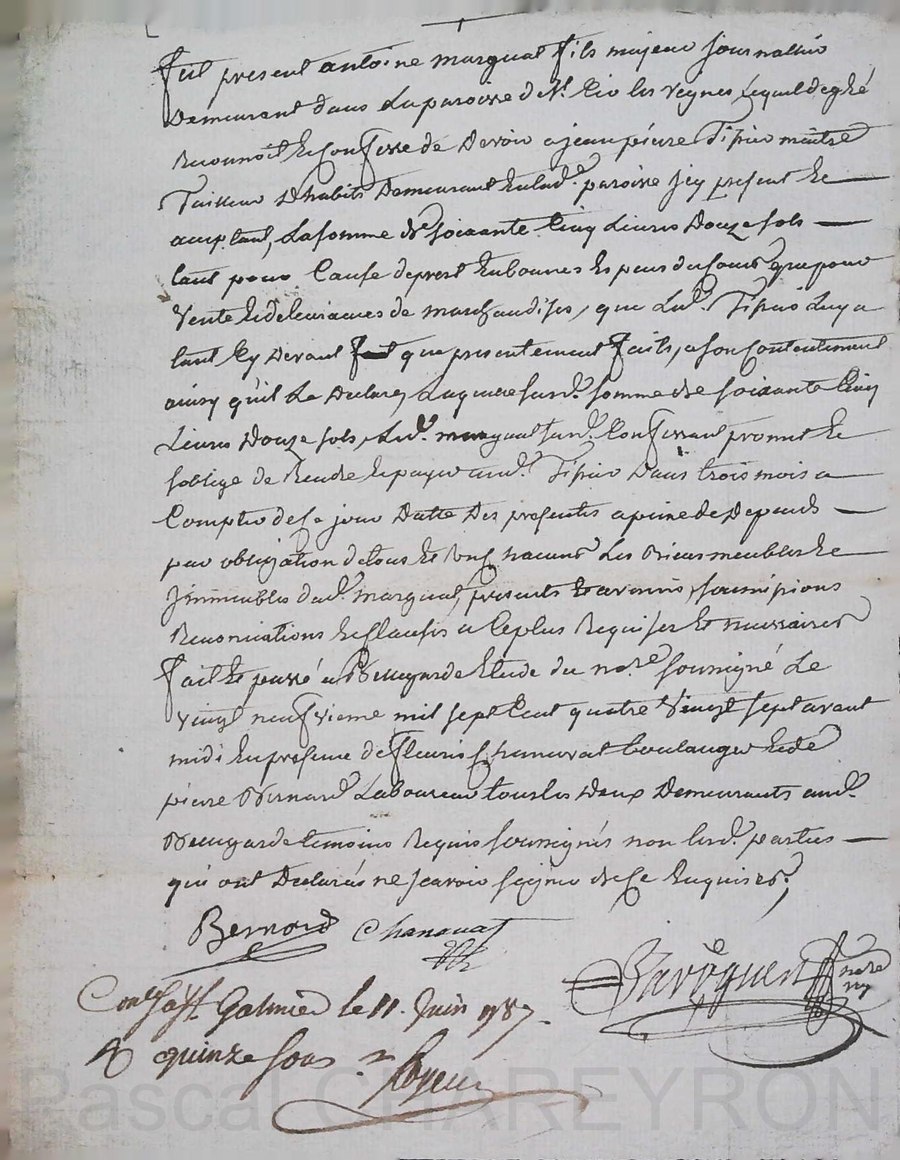 Fut present antoine margnat fils majeur journallier
Demeurant dans La paroisse de St. Cir les vegnes Lequel de gré
Reconnoit et Confesse de Devoir a jean pierre Tipier maitre
Tailleur D'habits Demeurant en lad. paroisse jcy present Et
acceptant, La somme de soixante Cinq Livres Douze sols
tant pour Cause de prest En bonnes Especes du Cours que pour
vente Et delivrances de marchandises, que Led. Tipier Luy a
tant Cy Devant que presentement faits, a son Contentement
ainsy qu'il Le Declare, Laquelle susd. somme de soixante Cinq
Livres Douze sols, Led. margnat susd. Confessant promet Et
s'oblige de Rendre et payer aud. Tipier Dans trois mois a
Compter de Ce jour Datte Des presentes a peine de Depends
par obligation de tous Et Un Chacuns Les Biens meubles Et
jmmeubles dud. margnat, presents Et avenir, soumissions
Renonciations Et Clauses a Ce plus Requises Et necessaires
fait Et passé a Bellegarde Etude du nore. soussigné Le
vingt neuf mil sept Cent quatre vingt sept avant
midi En presence de fleuris Chanavat boulanger Et de
pierre Bernard Laboureur tous les Deux Demeurants aud.
Bellegarde temoins Requis soussignés non Lesd. parties
qui ont Declarés ne sçavoir signer de Ce Enquises.
Bernard Chanavat
nore
ry
Conté à St. Galmier le 11. Juin 1787.
R quinze sous
Pascal CHAREYRON